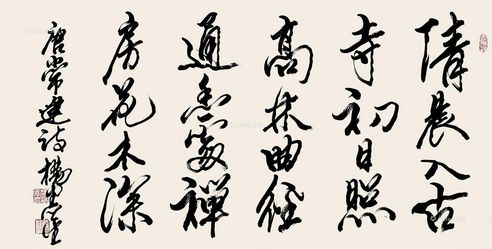 清晨入古
寺初日照
高林曲径
通幽處禪
房花木深
唐常建诗